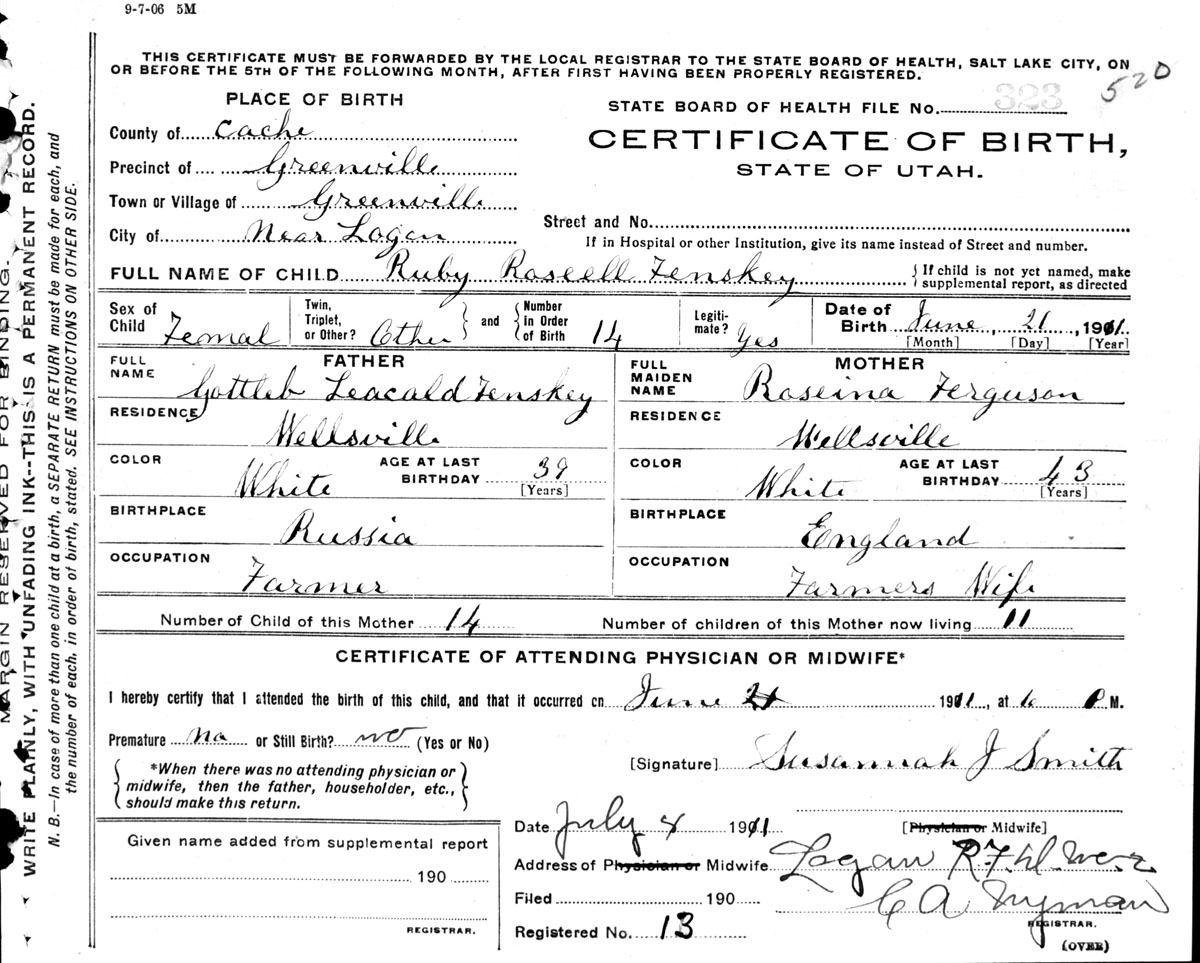 9-7-06 5M
THIS CERTIFICATE MUST BE FORWARDED BY THE LOCAL REGISTRAR TO THE STATE BOARD OF HEALTH, SALT LAKE CITY, ON
OR BEFORE THE 5TH OF THE FOLLOWING MONTH, AFTER FIRST HAVING BEEN PROPERLY REGISTERED.
520
PLACE OF BIRTH
STATE BOARD OF HEALTH FILE No. 323
County of Cache
CERTIFICATE OF BIRTH,
STATE OF UTAH.
Precinct of Greenville
Town or Village of Greenville
Street and No.
City of Near Logan
If in Hospital or other Institution, give its name instead of Street and number.
FULL NAME OF CHILD Ruby Roseell Fenskey
{ If child is not yet named, make
supplemental report, as directed
Sex of Child Femal
Twin, Triplet, or Other? Other } and { Number in Order of Birth 14
Legiti-mate? Yes
Date of Birth June, 21, 1911.
[Month] [Day] [Year]
FATHER
FULL NAME Gottleb Leacald Fenskey
RESIDENCE Wellsville
COLOR White AGE AT LAST BIRTHDAY 39 [Years]
BIRTHPLACE Russia
OCCUPATION Farmer
MOTHER
FULL MAIDEN NAME Roseina Ferguson
RESIDENCE Wellsville
COLOR White AGE AT LAST BIRTHDAY 43 [Years]
BIRTHPLACE England
OCCUPATION Farmers Wife
Number of Child of this Mother 14 Number of children of this Mother now living 11
CERTIFICATE OF ATTENDING PHYSICIAN OR MIDWIFE*
I hereby certify that I attended the birth of this child, and that it occurred on June 21 1911, at 6 P M.
Premature no or Still Birth? no (Yes or No)
*When there was no attending physician or
midwife, then the father, householder, etc.,
should make this return.
[Signature] Susannah J Smith
[Physician or Midwife]
Given name added from supplemental report
190
REGISTRAR.
Date July 8 1911
Address of Physician or Midwife Logan R.F.D. No 2
Filed 190
C A Nyman
REGISTRAR.
Registered No. 13
(OVER)
MARGIN RESERVED FOR BINDING.
WRITE PLAINLY, WITH UNFADING INK--THIS IS A PERMANENT RECORD.
N. B.—In case of more than one child at a birth, a SEPARATE RETURN must be made for each, and
the number of each, in order of birth, stated. SEE INSTRUCTIONS ON OTHER SIDE.